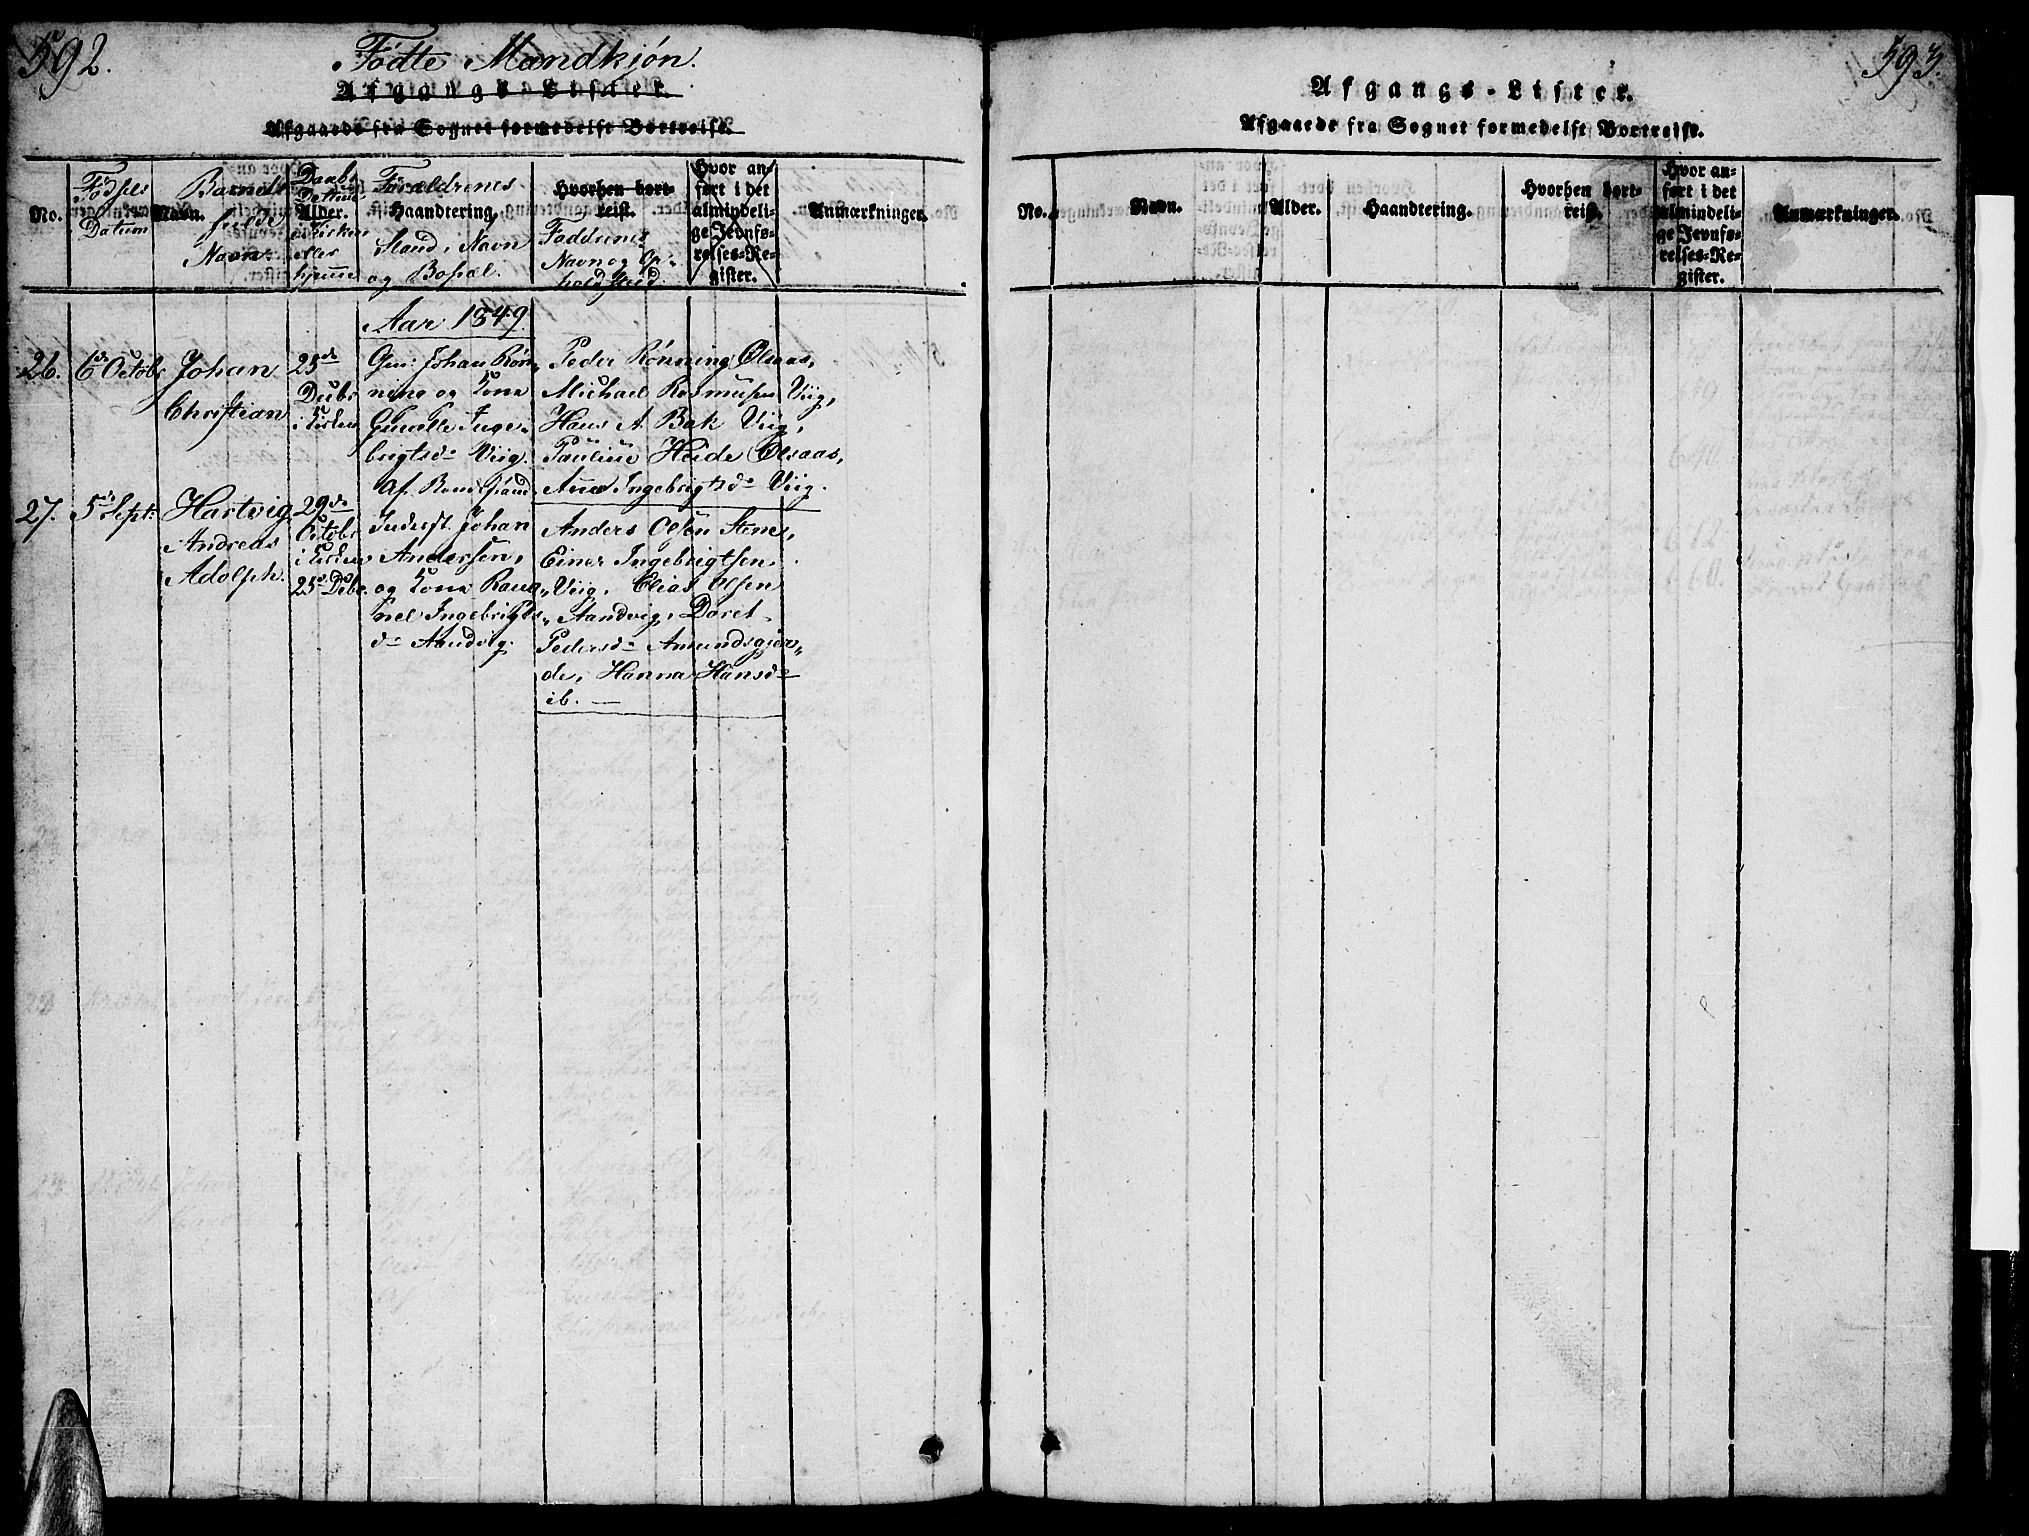 592.
Födte Mandkjön.
Afgangs-Lister.
Afgaaede fra Sognet formedelst Bortreise.
No.
Födsels
Datum
Barnets
Navn.
fulde
Navn
Daabs
Datum
Alder.
i Kirken
eller
hjemme
Forældrenes
Haandtering,
Stand, Navn
og Bopæl.
Hvorhen bort-
reist.
Faddernes
Navn og Op-
holdssted.
Hvor an-
ført i det
almindeli-
ge Jevnfø-
relses-Re-
gister.
Anmærkninger.
Aar 1849.
26.
6te Octobr
Johan
Christian
25de
Decbr
i Kirken
Gm: Johan Røn-
ning og Kone
Ingebrigtsd. Viig.
Peder Rönning Olsaas,
Michael Rasmusen Viig,
Hans A. Bak Viig,
Pauline Heide Olsaas,
Anna Ingebrigtsd. Viig.
27.
5te Sept:
Hartvig
Andreas
Adolph.
29de
Octobr
i Kirken
25de Decbr.
Inderst Johan
Andersen,
og Kone
nel Ingebrigts-
d. Aandvig.
Anders Olsen Stene,
Einer Ingebrigtsen
Viig, Elias Olsen
Aandvig, Doret
Pedersd. Amundsgjer-
de, Hanna Hansd.
ib. —
593.
Afgangs-Lister.
Afgaaede fra Sognet formedelst Bortreise.
No.
Navn.
Alder.
Haandtering.
Hvorhen bort-
reist.
Hvor an-
ført i det
almindeli-
ge Jevnfø-
relses-Re-
gister.
Anmærkninger.